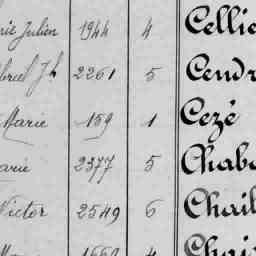 rie Julien 1944 4 Cellie
briel Jh 2261 5 Cendr
Marie 159 1 Cezé
arie 2377 5 Chabo
Victor 2549 6 Chail
4 Chai